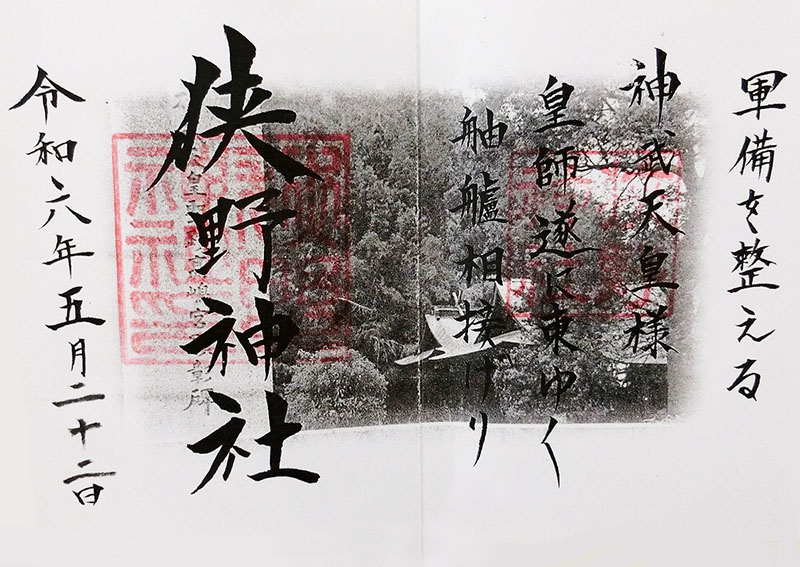 軍備を整える
神武天皇様
皇師遂に東ゆく
舳艫相接げり
狭野神社
令和六年五月二十二日